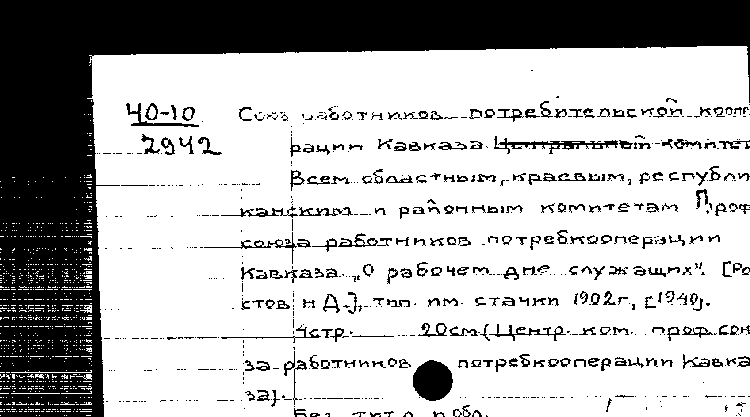 40-10
2942
Союз работников потребительской кооп
рации Кавказа Центральный комитет
Всем областным, краевым, республи
канским и районным комитетам Проф
союза работников потребкооперации
Кавказа „О рабочем дне служащих". [Ро
стов н Д.], тип. им. стачки 1902 г, [1940].
4стр. 20см (Центр. ком. проф. сою
за работников потребкооперации Кавка
за).
Без тит. л. и обл.